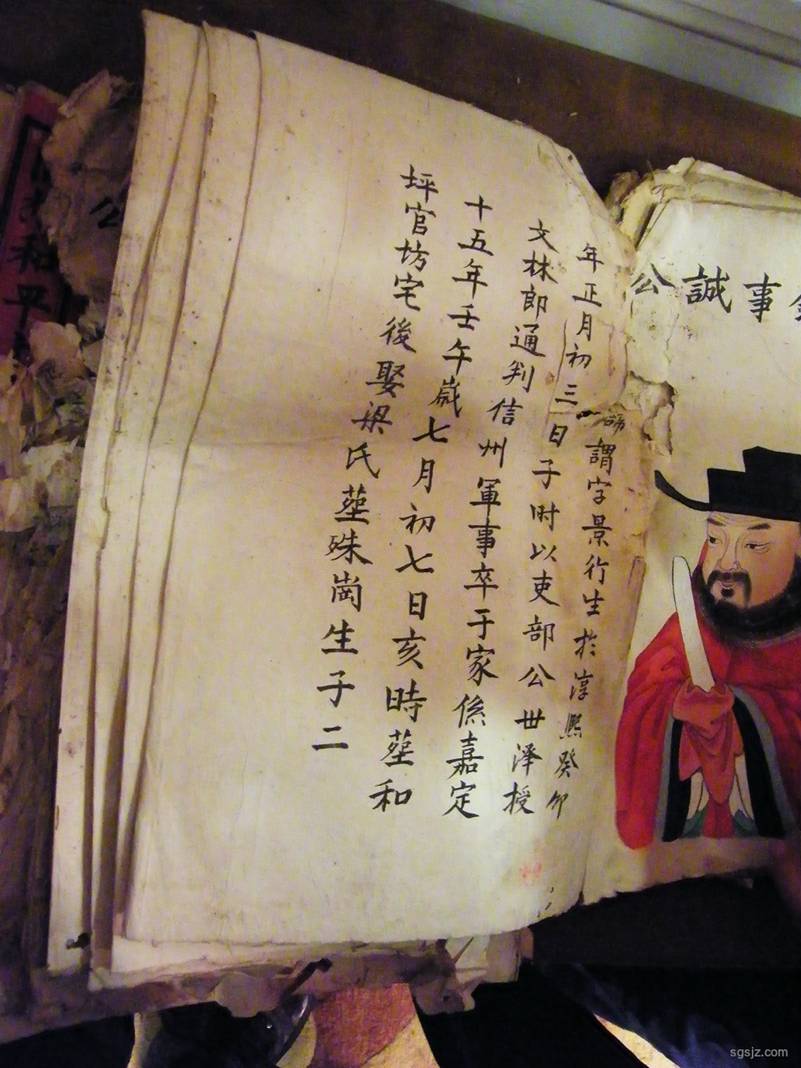 事誠公
謂字景行生於淳熙癸卯
年正月初三日子时以吏部公世澤授
文林郎通判信州軍事卒于家係嘉定
十五年壬午歲七月初七日亥時塟和
坪官坊宅後娶梁氏塟殊崗生子二
和平
公
sgsjz.com